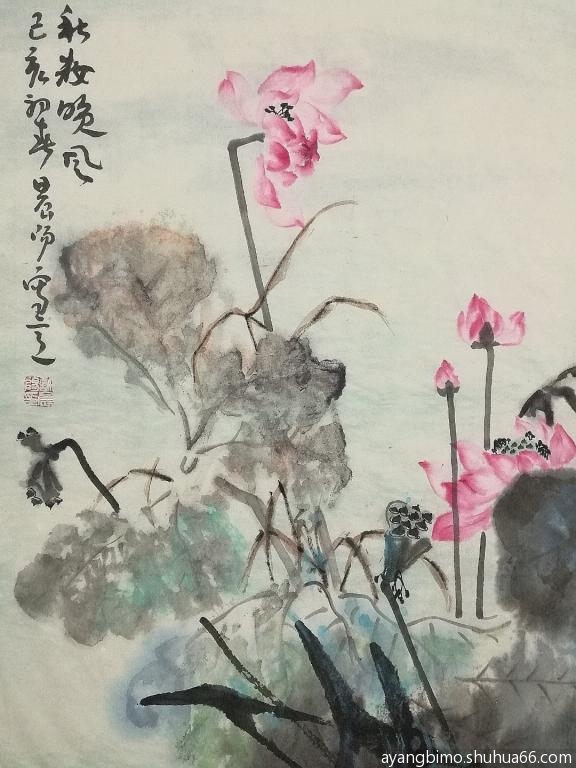 秋妆晚风
己亥初春晨
ayangbimo.shuhua66.com